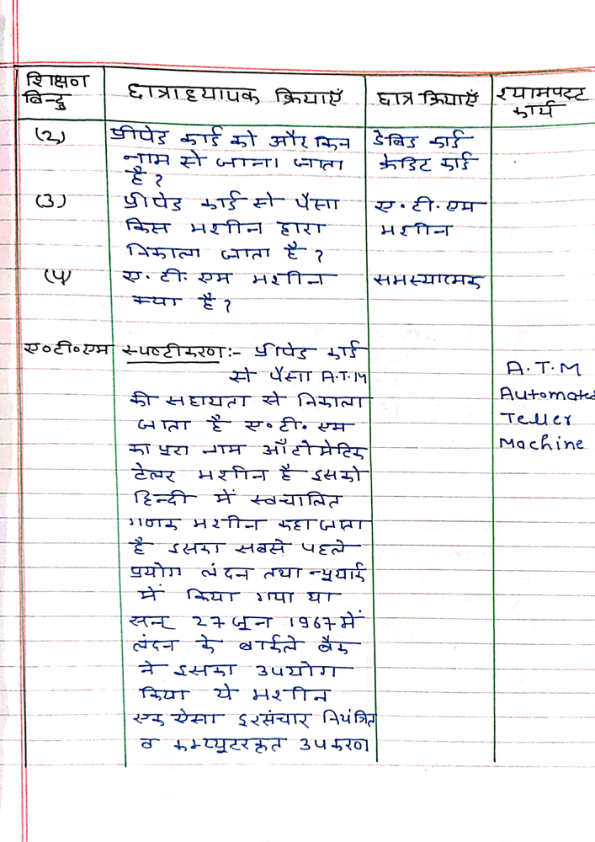 शिक्षण छात्राध्यापक क्रियाएँ छात्र क्रियाएँ श्यामपट्ट
बिन्दु कार्य
(2) प्रीपेड कार्ड को और किन डेबिड कार्ड
नाम से जाना जाता क्रेडिट कार्ड
है ?
(3) प्रीपेड कार्ड से पैसा ए.टी.एम
किस मशीन द्वारा मशीन
निकाला जाता है ?
(4) ए.टी.एम मशीन समस्यात्मक
क्या है ?
ए०टी०एम स्पष्टीकरण:- प्रीपेड कार्ड
से पैसा A.T.M
की सहायता से निकाला
जाता है ए०टी०एम
का पुरा नाम ऑटोमेटिक
टेलर मशीन है इसको
हिन्दी में स्वचालित
गणक मशीन कहा जाता
है इसका सबसे पहले
प्रयोग लंदन तथा न्यूयार्क
में किया गया था
सन् 27 जून 1967 में
लंदन के बार्कले बैंक
ने इसका उपयोग
किया ये मशीन
एक ऐसा दूरसंचार नियंत्रित
व कम्प्युटरकृत उपकरण
A.T.M
Automated
Teller
Machine